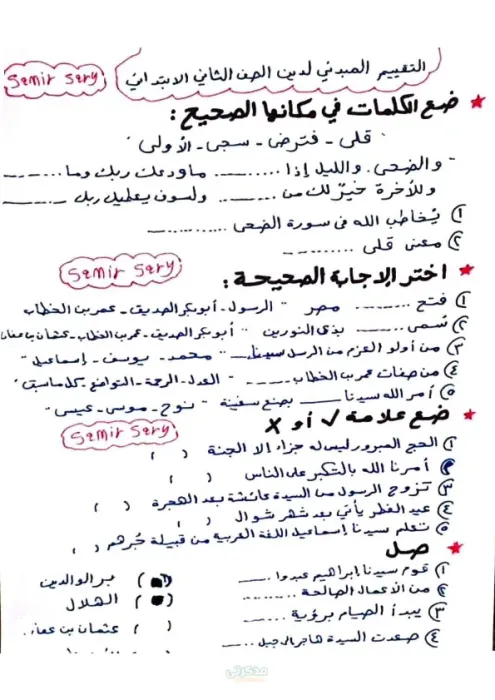 التقييم المبدئي لدين الصف الثاني الابتدائي
Samir Sary
★ ضع الكلمات في مكانها الصحيح :
" قلى - فترضى - سجى - الأولى "
- والضحى . والليل إذا ......... ماودعك ربك وما .........
وللآخرة خيرٌ لك من ......... ولسوف يعطيك ربك .........
١) يُخاطب الله في سورة الضحى .........
٢) معنى قلى .........
Samir Sary
★ اختر الإجابة الصحيحة :
١) فتح ......... مصر " الرسول - أبو بكر الصديق - عمر بن الخطاب
٢) سُمى ......... بذى النورين " أبو بكر الصديق - عمر بن الخطاب - عثمان بن عفان
٣) من أولو العزم من الرسل سيدنا ......... " محمد - يوسف - إسماعيل "
٤) من صفات عمر بن الخطاب ......... " العدل - الرحمة - التواضع - كل ماسبق "
٥) أمر الله سيدنا ......... بصنع سفينة " نوح - موسى - عيسى "
★ ضع علامة ✓ أو X
Samir Sary
١) الحج المبرور ليس له جزاء إلا الجنة ( )
أمرنا الله بالتكبر على الناس ( )
٣) تزوج الرسول من السيدة عائشة بعد الهجرة ( )
٤) عيد الفطر يأتي بعد شهر شوال ( )
٥) تعلم سيدنا إسماعيل اللغة العربية من قبيلة جُرهم ( )
★ صل
١) قوم سيدنا إبراهيم عبدوا ......... ( ) بر الوالدين
٢) من الأعمال الصالحة ......... ( ) الهلال
٣) يبدأ الصيام برؤية ......... ( ) عثمان بن عفان
٤) صعدت السيدة هاجر إلى جبل ......... ( )
مذكرتي